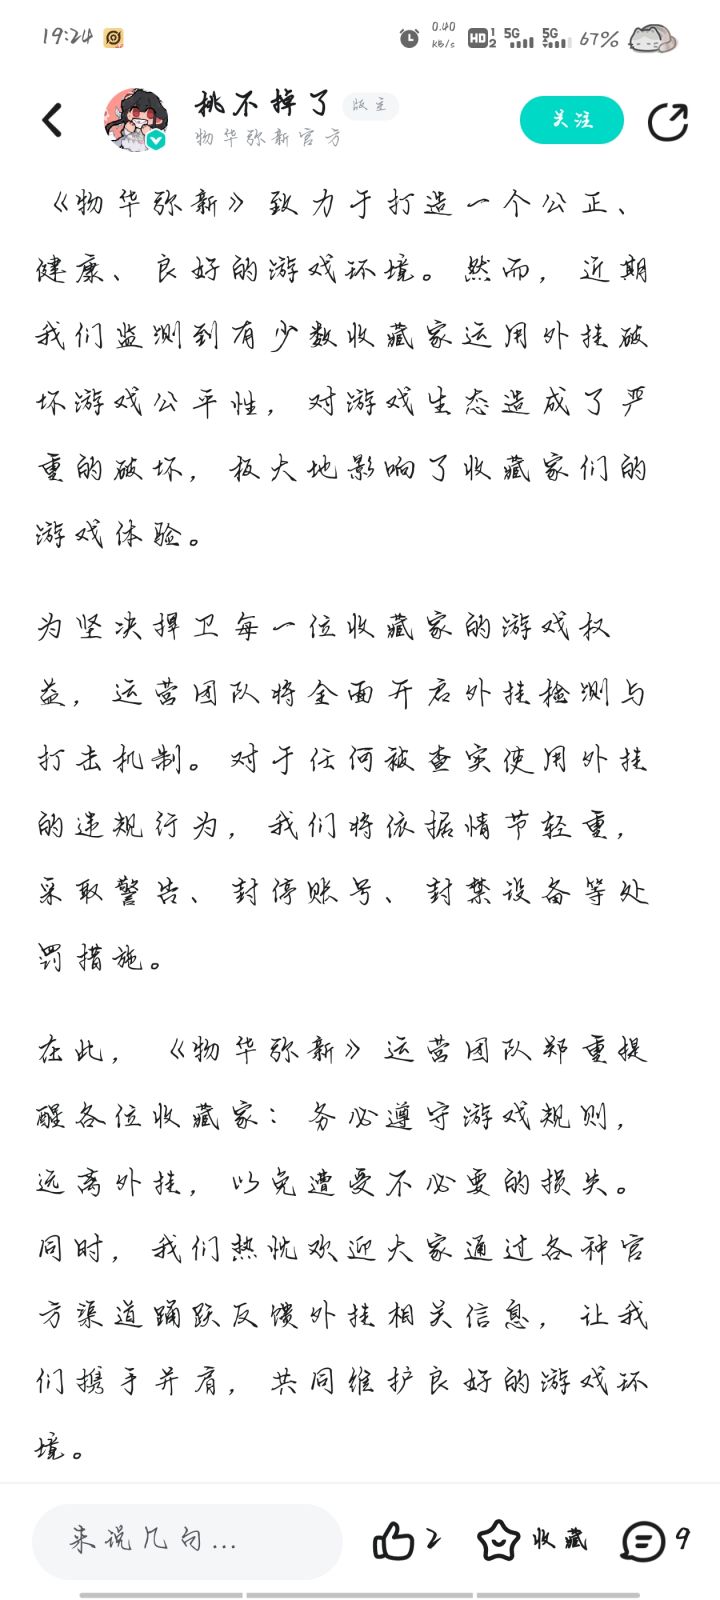 19:24
0.40
KB/s
HD 1 2
5G
5G
67%
桃不掉了 版主
物华弥新官方
关注
《物华弥新》致力于打造一个公正、
健康、良好的游戏环境。然而，近期
我们监测到有少数收藏家运用外挂破
坏游戏公平性，对游戏生态造成了严
重的破坏，极大地影响了收藏家们的
游戏体验。
为坚决捍卫每一位收藏家的游戏权
益，运营团队将全面开启外挂检测与
打击机制。对于任何被查实使用外挂
的违规行为，我们将依据情节轻重，
采取警告、封停账号、封禁设备等处
罚措施。
在此，《物华弥新》运营团队郑重提
醒各位收藏家：务必遵守游戏规则，
远离外挂，以免遭受不必要的损失。
同时，我们热忱欢迎大家通过各种官
方渠道踊跃反馈外挂相关信息，让我
们携手并肩，共同维护良好的游戏环
境。
来说几句...
2
收藏
9